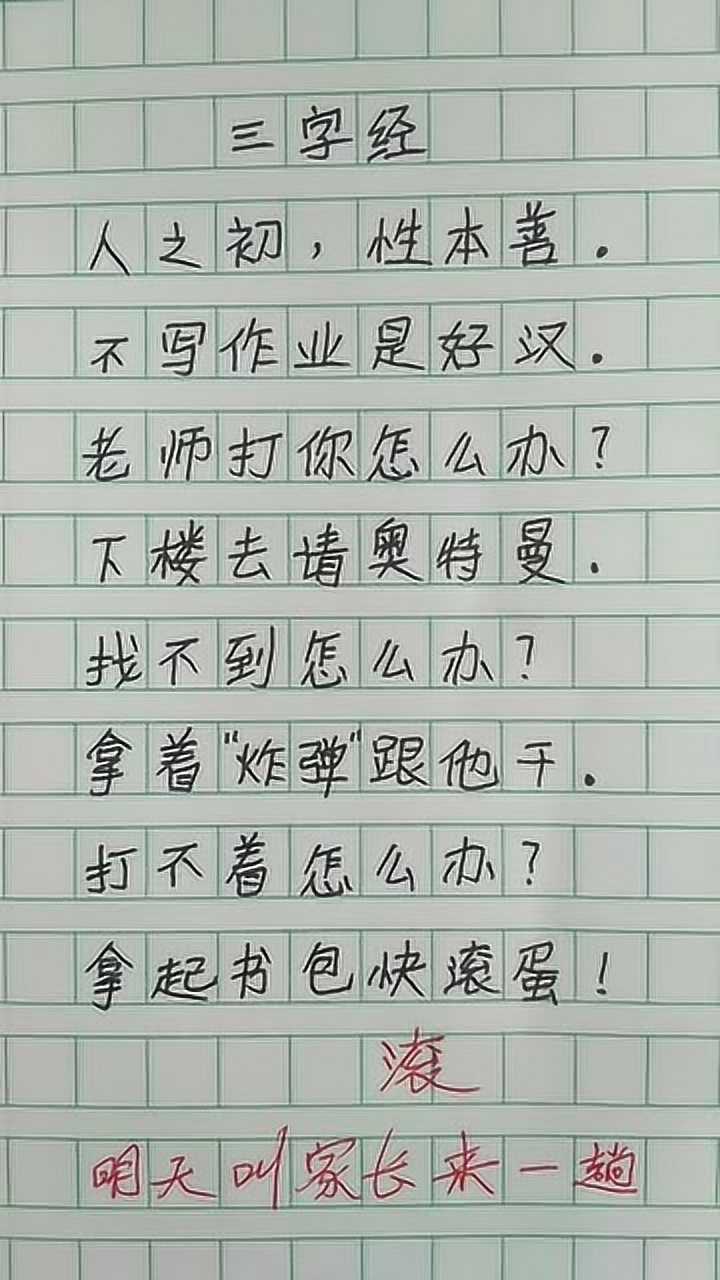 三字经
人之初，性本善.
不写作业是好汉.
老师打你怎么办?
下楼去请奥特曼.
找不到怎么办?
拿着“炸弹”跟他干.
打不着怎么办?
拿起书包快滚蛋!
滚
明天叫家长来一趟